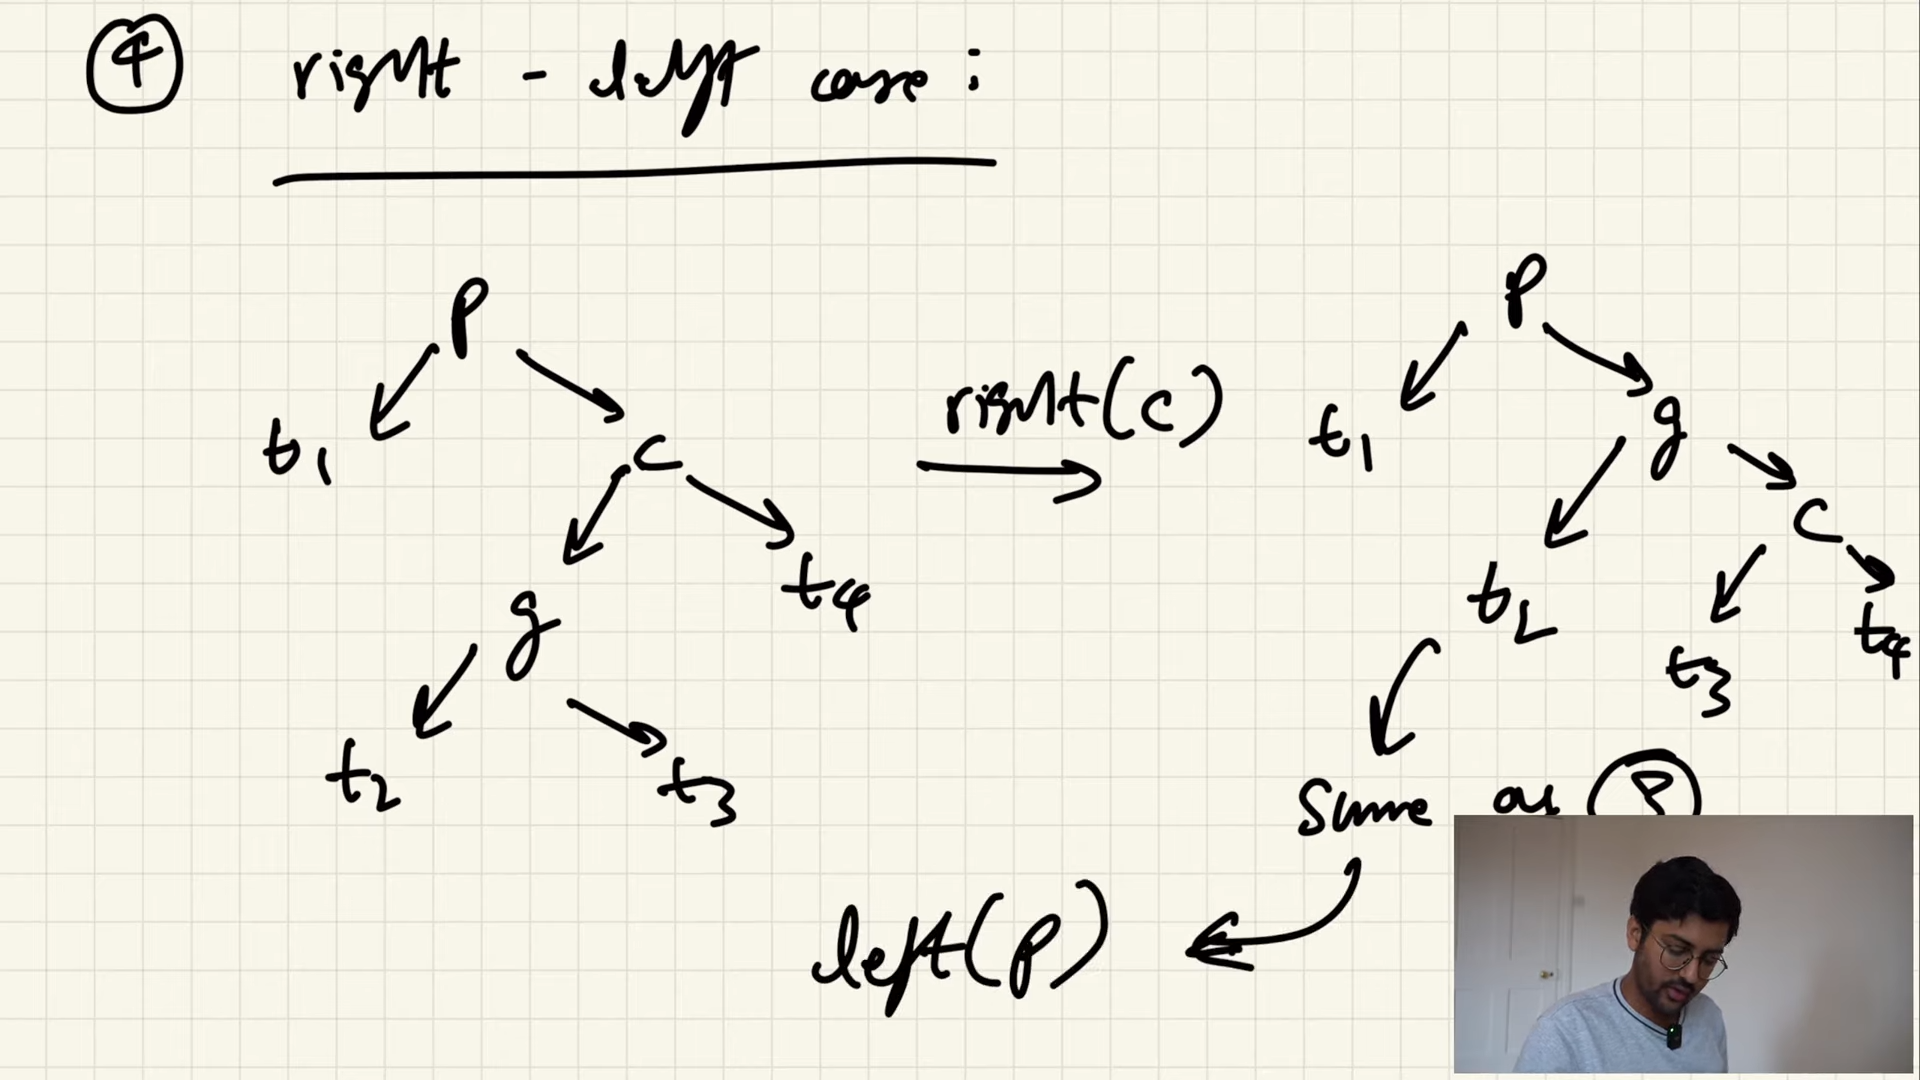 4 right - left case :
p
t1 c
g t4
t2 t3
right(c)
p
t1 g
t2 c
t3 t4
Same as
left(p)